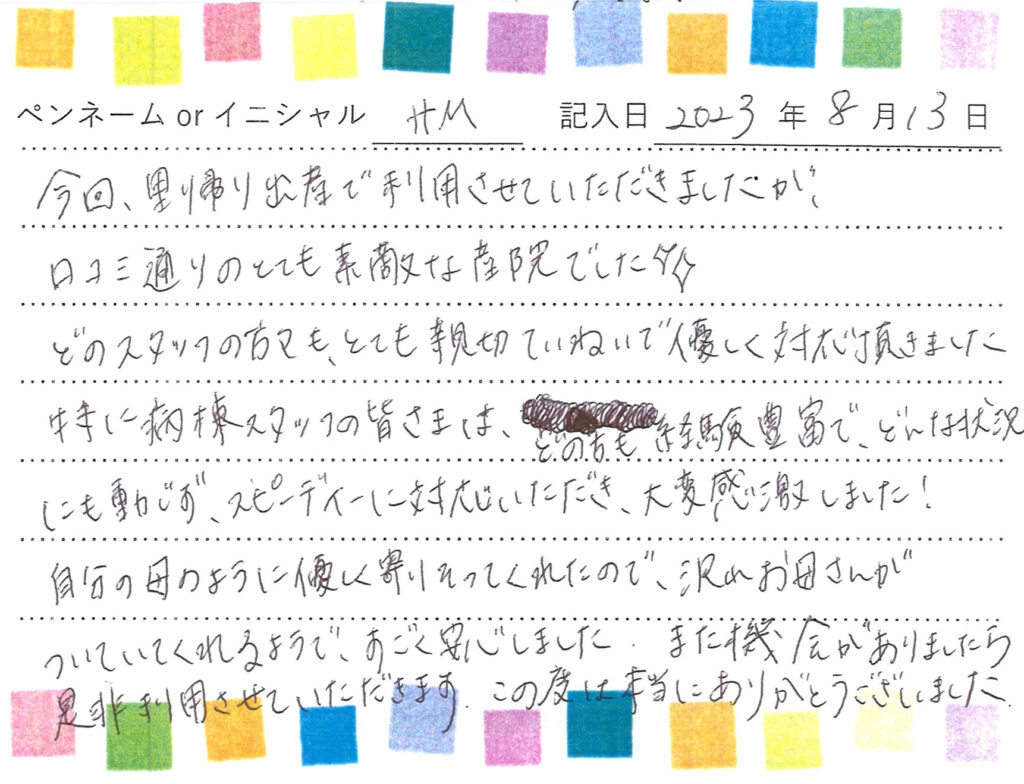 ペンネーム or イニシャル HM 記入日 2023 年 8 月 13 日
今回、里帰り出産で利用させていただきましたが、
口コミ通りのとても素敵な産院でした
どのスタッフの方も、とても親切ていねいで優しく対応頂きました
特に病棟スタッフの皆さまは、どの方も経験豊富で、どんな状況
にも動じず、スピーディーに対応いただき、大変感激しました!
自分の母のように優しく寄りそってくれたので、沢山お母さんが
ついていてくれるようで、すごく安心しました. また機会がありましたら
是非利用させていただきます. この度は本当にありがとうございました.